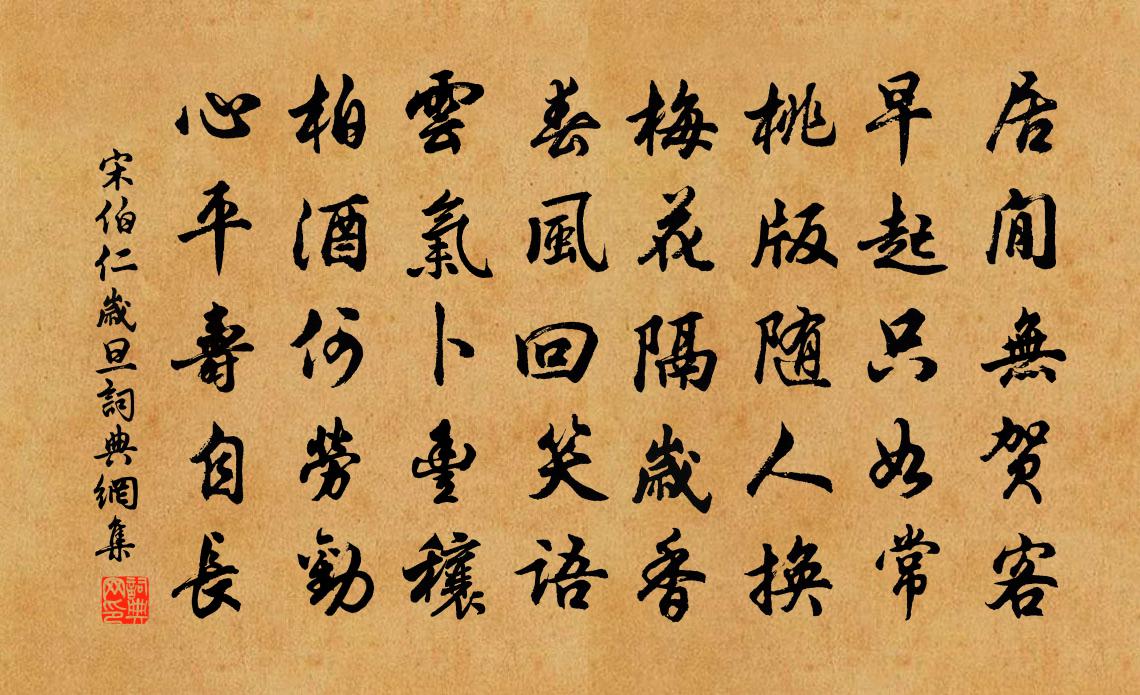 居閒無賀客
早起只如常
桃版随人換
梅花隔歲香
春風回笑語
雲氣卜豐穰
柏酒何勞勸
心平壽自長
宋伯仁歲旦詞典網集
詞典网印